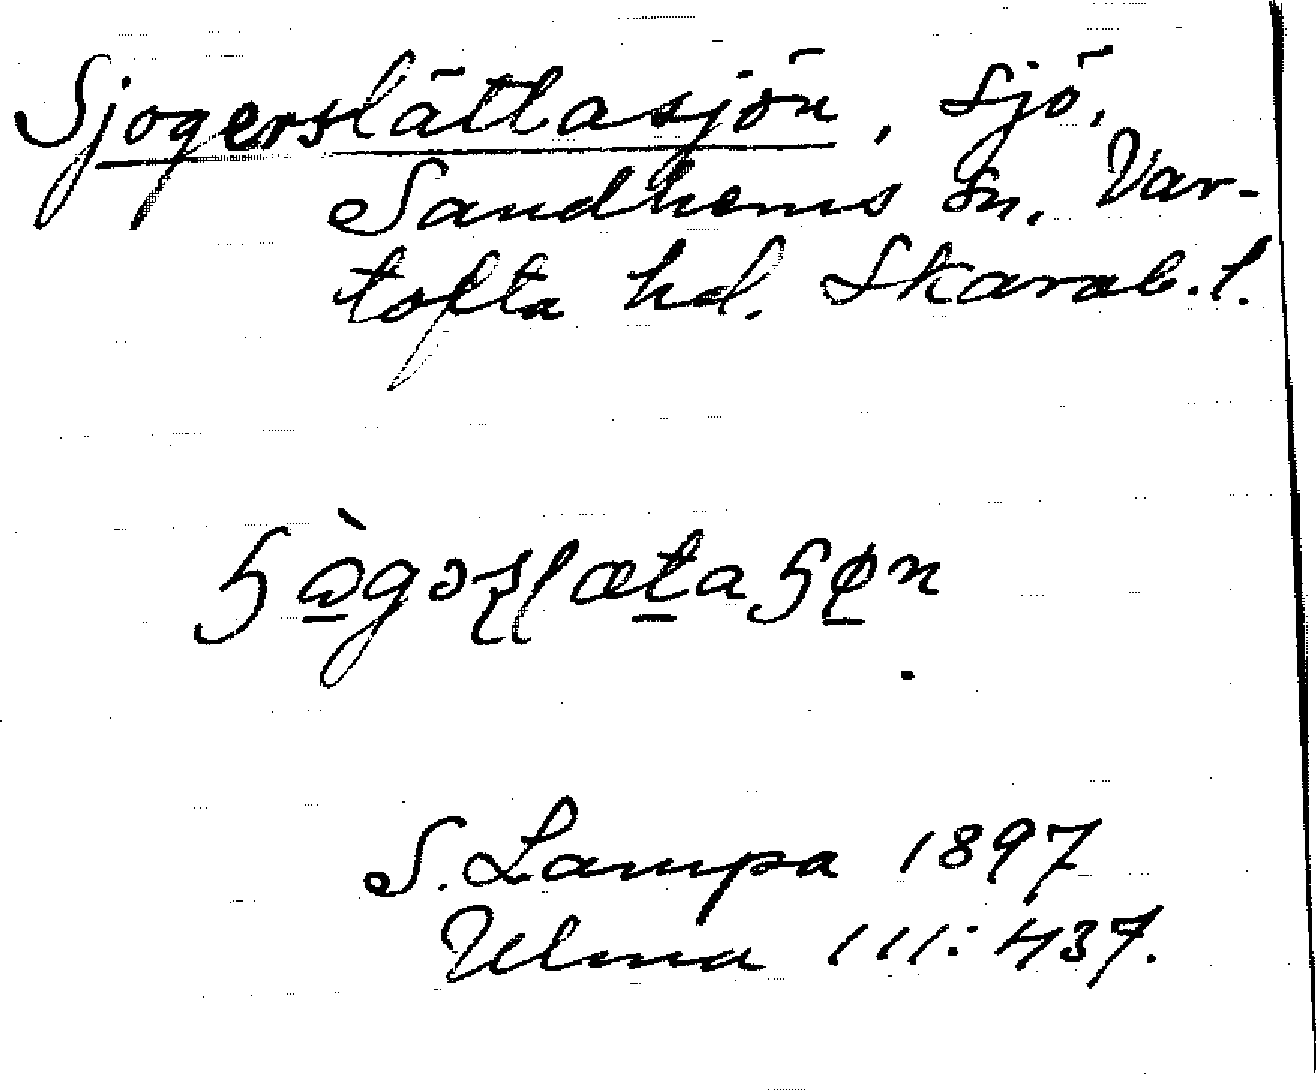 Sjogerslättasjön, sjö,
Sandhems sn, Var-
tofta hd. Skarab. l.
S. Lampa 1897
Ulma 111:437.